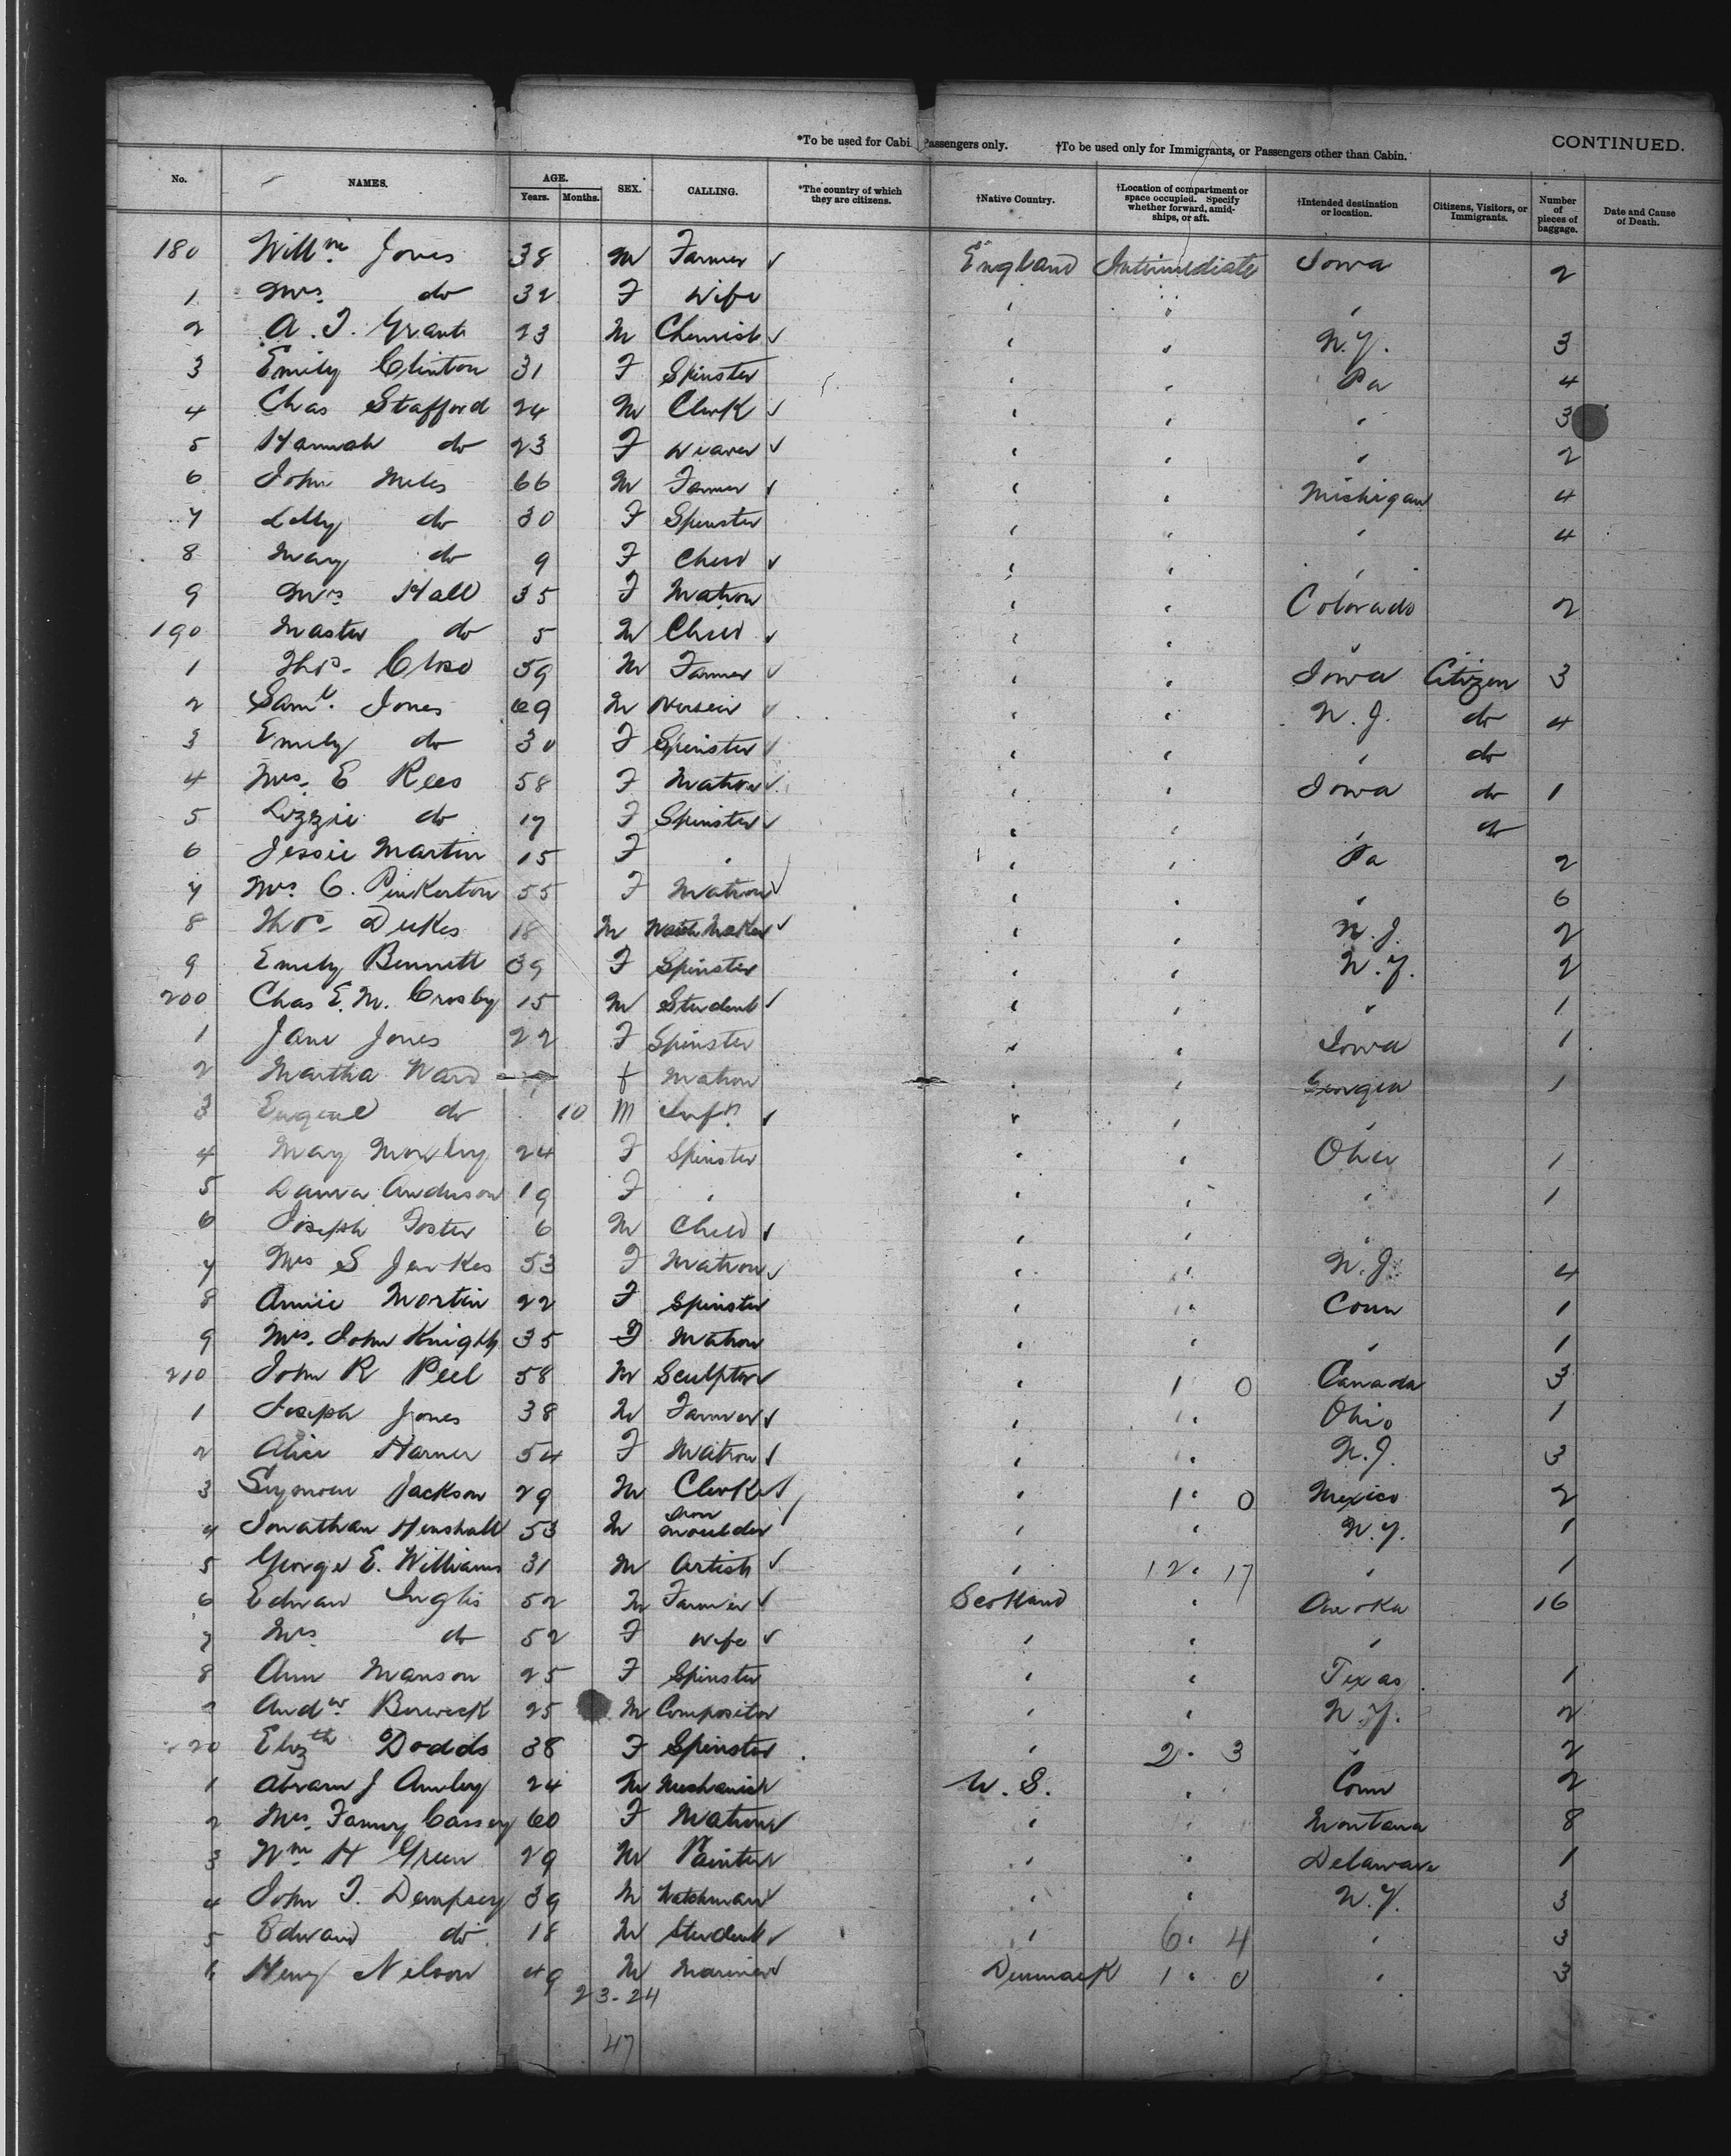 *To be used for Cabi Passengers only. †To be used only for Immigrants, or Passengers other than Cabin. CONTINUED.
No. NAMES. AGE. Years. Months. SEX. CALLING. *The country of which they are citizens. †Native Country. †Location of compartment or space occupied. Specify whether forward, amidships, or aft. †Intended destination or location. Citizens, Visitors, or Immigrants. Number of pieces of baggage. Date and Cause of Death.
180 Willm Jones 38 M Farmer ✓ England Intermediate Iowa 2
1 Mrs do 32 F Wife " " "
2 A. T. Grant 23 M Chemist ✓ " " N.Y. 3
3 Emily Clinton 31 F Spinster " " Pa 4
4 Chas Stafford 24 M Clerk ✓ " " " 3
5 Hannah do 23 F Weaver ✓ " " " 2
6 John Miles 66 M Farmer ✓ " " Michigan 4
7 Lilly do 30 F Spinster " " " 4
8 Mary do 9 F Child ✓ " " "
9 Mrs Hall 35 F Matron " " Colorado 2
190 Master do 5 M Child ✓ " " "
1 Thos. 59 M Farmer ✓ " " Iowa Citizen 3
2 Saml. Jones 69 M ✓ " " N.J. do 4
3 Emily do 30 F Spinster ✓ " " " do
4 Mrs. E Rees 58 F Matron ✓ " " Iowa do 1
5 Lizzie do 17 F Spinster ✓ " " " do
6 Jessie Martin 15 F " " " Pa 2
7 Mrs C. Pinkerton 55 F Matron ✓ " " " 6
8 Thos Dukes 18 M Watch Maker ✓ " " N.J. 2
9 Emily Bennett 39 F Spinster " " N.Y. 2
200 Chas E. M. Crosby 15 M Student ✓ " " " 1
1 Jane Jones 22 F Spinster " " Iowa 1
2 Martha Ward F Matron " " Georgia 1
3 Eugene do 10 M Inft ✓ " " "
4 May 24 F Spinster " " Ohio 1
5 Laura Anderson 19 F " " " " 1
6 Joseph Foster 6 M Child ✓ " " "
7 Mrs S Jenkes 53 F Matron ✓ " " N.J. 4
8 Annie Martin 22 F Spinster " " Conn 1
9 Mrs. John Knight 35 F Matron " " " 1
210 John R Peel 58 M Sculptor ✓ " 1 " 0 Canada 3
1 Joseph Jones 38 M Farmer ✓ " " Ohio 1
2 Alice Harner 54 F Matron ✓ " " N.J. 3
3 Seymour Jackson 29 M Clerk ✓ " 1 " 0 Mexico 2
4 Jonathan Henshall 53 M Iron moulder ✓ " " N.Y. 1
5 George E. Williams 31 M Artist ✓ " 12 " 17 " 1
6 Edward Inglis 52 M Farmer ✓ Scotland " 16
7 Mrs do 52 F Wife ✓ " " "
8 Ann Manson 25 F Spinster " " Texas 1
9 Andw. Berwick 25 M Compositor " " N.Y. 2
220 Elizth Dodds 38 F Spinster " 2 " 3 " 2
1 Abram J 24 M Mechanic ✓ U.S. " Conn 2
2 Mrs. Fanny Cassey 60 F Matron ✓ " " Montana 8
3 Wm H Green 29 M Painter ✓ " " Delaware 1
4 John T. Dempsey 39 M Watchman ✓ " " N.Y. 3
5 Edward do 18 M Student ✓ " 6 " 4 " 3
6 Henry Nelson 49 M Mariner ✓ Denmark 1 " 0 " 3
23-24
47